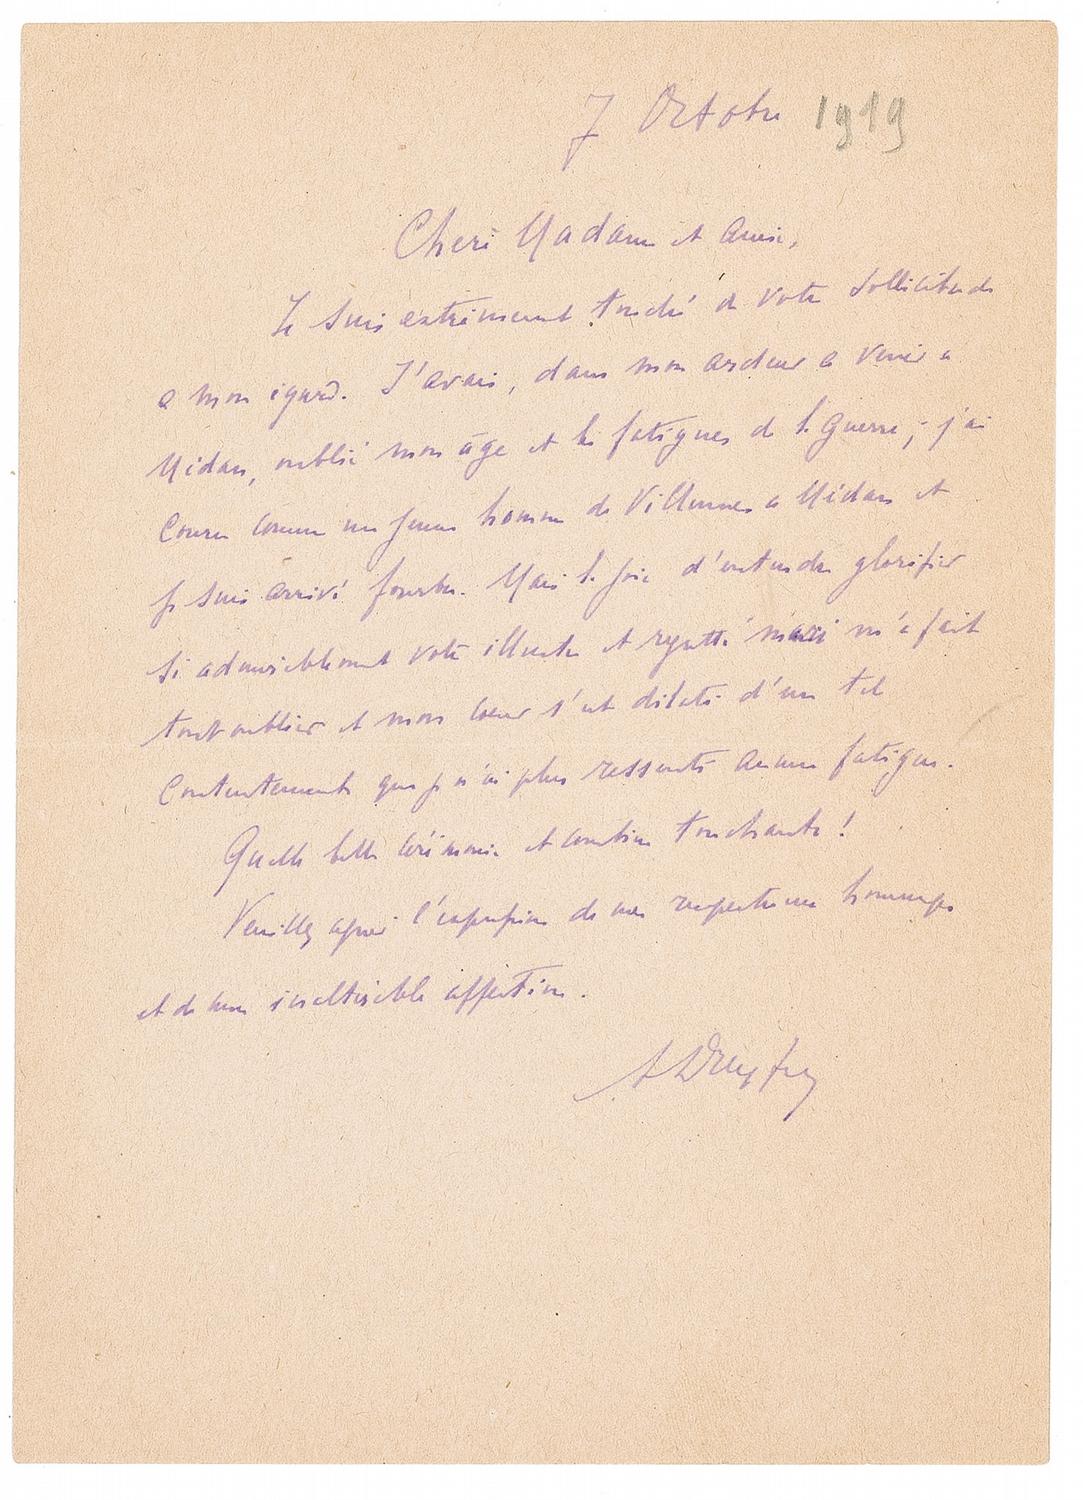 7 Octobre 1919
Chère Madame et Amie,
Je suis extrêmement touché de votre sollicitude
a mon égard. J'avais, dans mon ardeur a venir a
Médan, oublié mon âge et les fatigues de la guerre ; j'ai
couru comme un jeune homme de Villennes a Médan et
je suis arrivé fourbu. Mais la joie d'entendre glorifier
si admirablement votre illustre et regretté mari m'a fait
tout oublier et mon cœur s'est dilaté d'un tel
contentement que je n'ai plus ressenti aucune fatigue.
Quelle belle cérémonie et combien touchante !
Veuillez agréer l'expression de mes respectueux hommages
et de mon inaltérable affection.
A Dreyfus